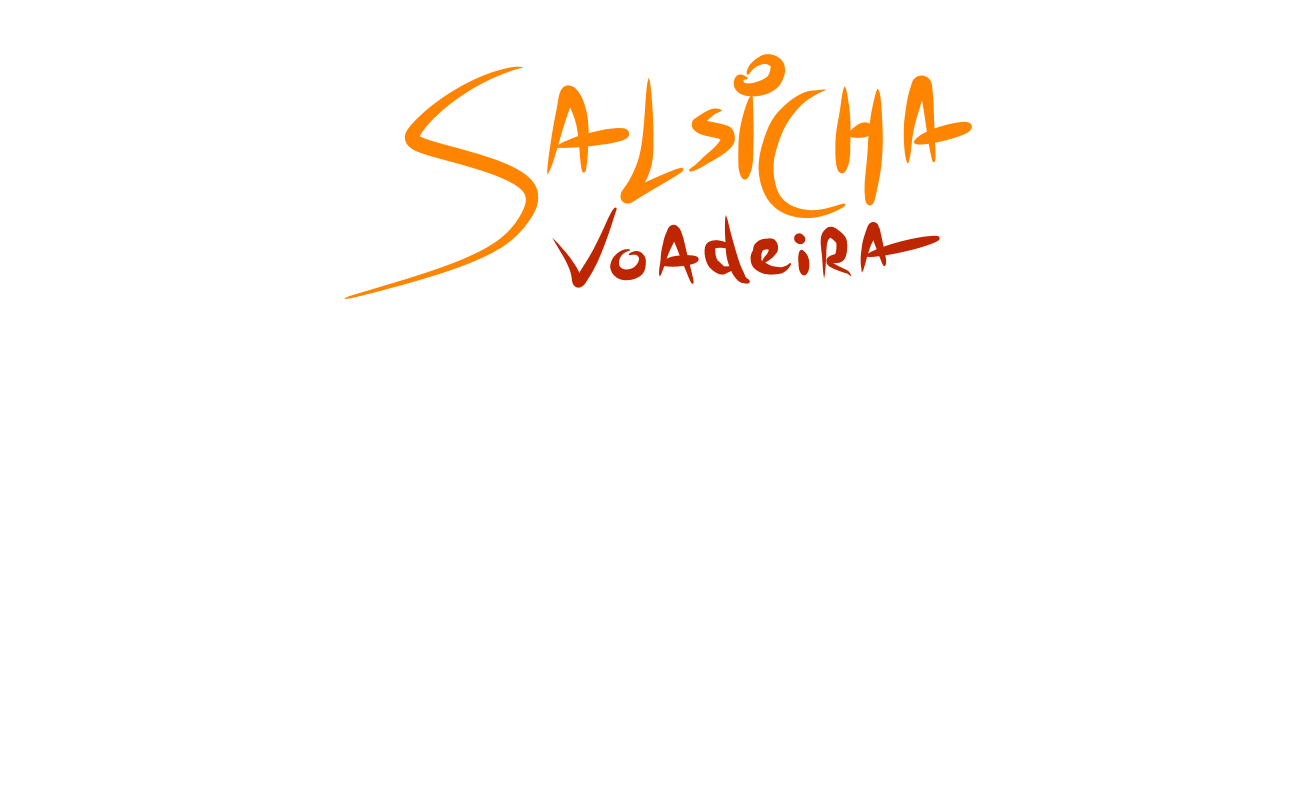 SALSiCHA
VOAdeiRA